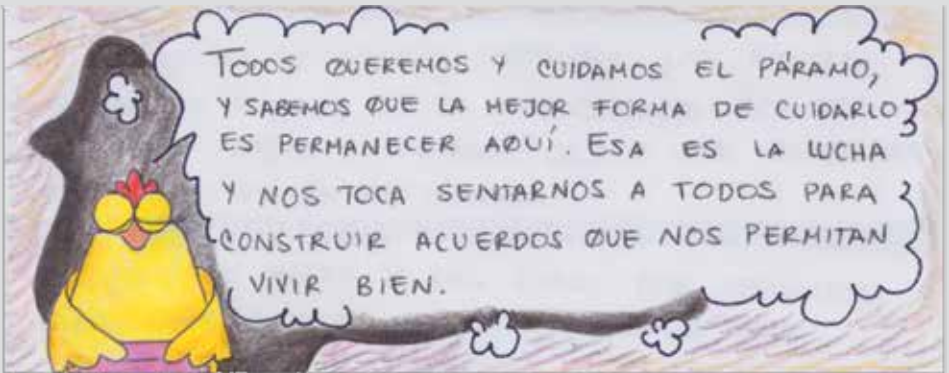 TODOS QUEREMOS Y CUIDAMOS EL PÁRAMO,
Y SABEMOS QUE LA MEJOR FORMA DE CUIDARLO
ES PERMANECER AQUÍ. ESA ES LA LUCHA
Y NOS TOCA SENTARNOS A TODOS PARA
CONSTRUIR ACUERDOS QUE NOS PERMITAN
VIVIR BIEN.